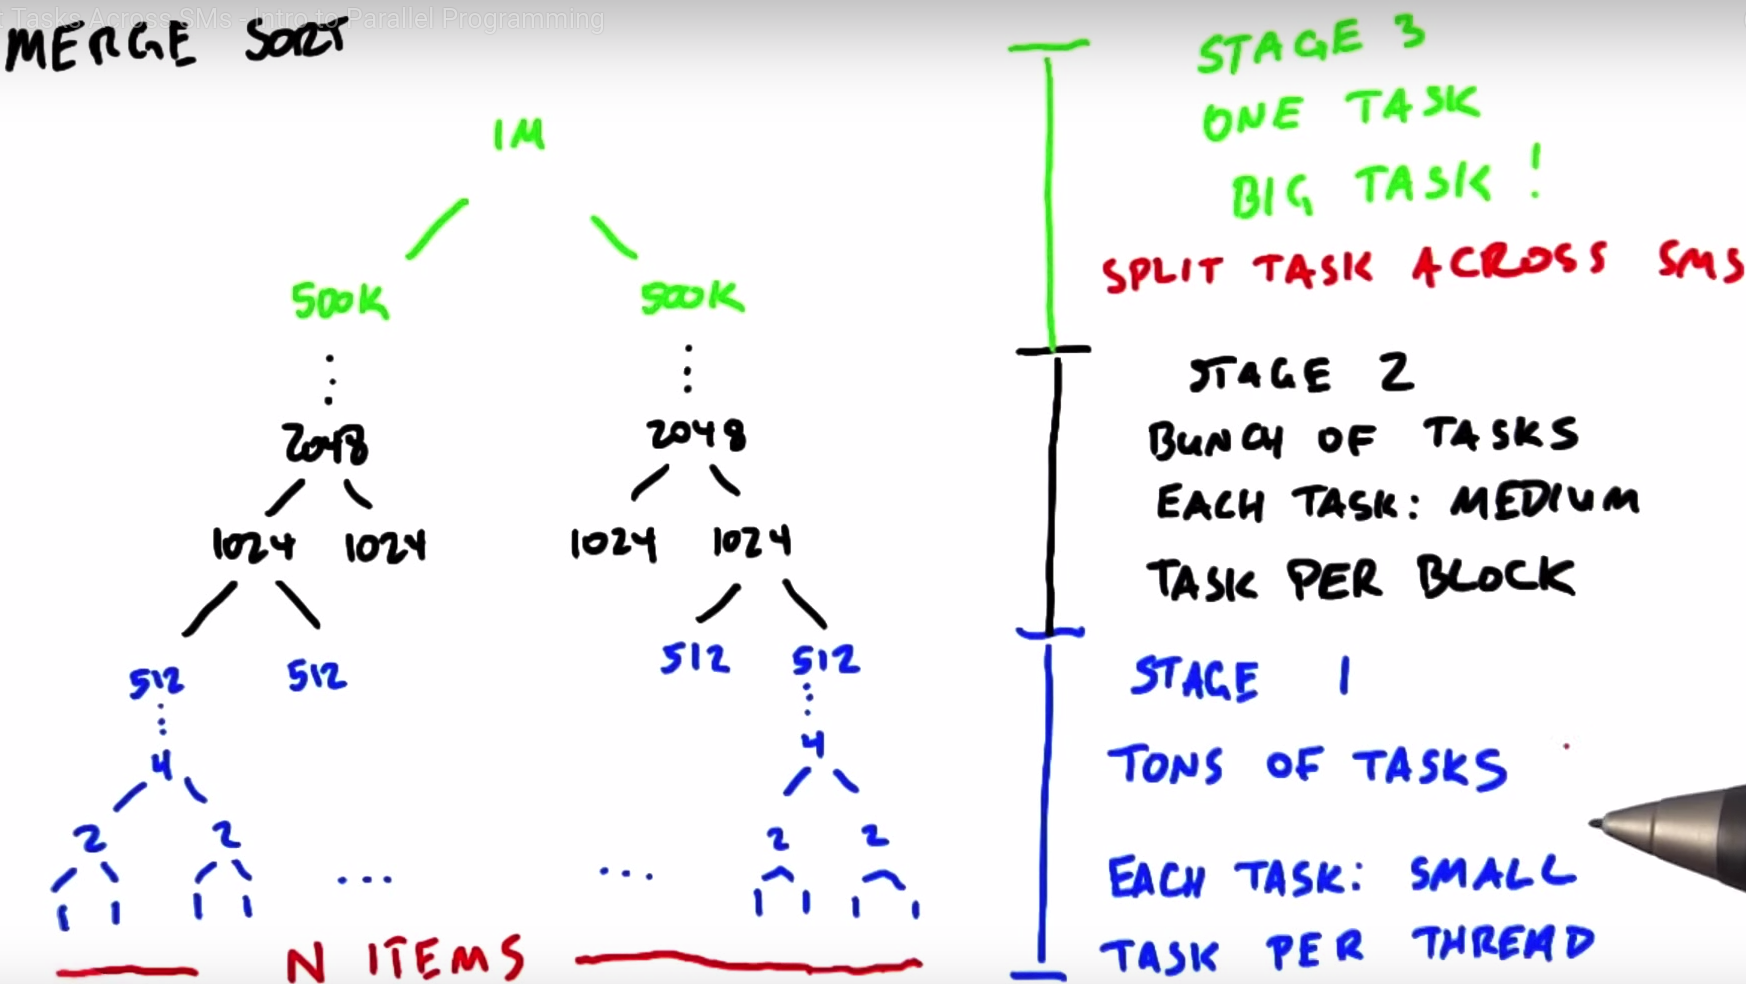 Tasks Across SMs - Intro to Parallel Programming
MERGE SORT
1M
500K 500K
2048 2048
1024 1024 1024 1024
512 512 512 512
4 4
2 2 2 2
1 1 1 1 ... ... 1 1 1 1
N ITEMS
STAGE 3
ONE TASK
BIG TASK!
SPLIT TASK ACROSS SMS
STAGE 2
BUNCH OF TASKS
EACH TASK: MEDIUM
TASK PER BLOCK
STAGE 1
TONS OF TASKS
EACH TASK: SMALL
TASK PER THREAD